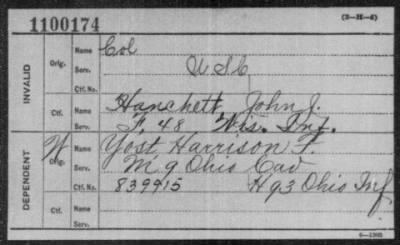 1100174
(3-H-6)
INVALID
Orig. Name Col
Serv. U S C
Ctf. No.
Ctf. Name Hanchett John J.
Serv. F, 48 Wis. Inf.
DEPENDENT
W Orig. Name Yost Harrison F.
Serv. M 9 Ohio Cav
Ctf. No. 839915 H 93 Ohio Inf
Ctf. Name
Serv.